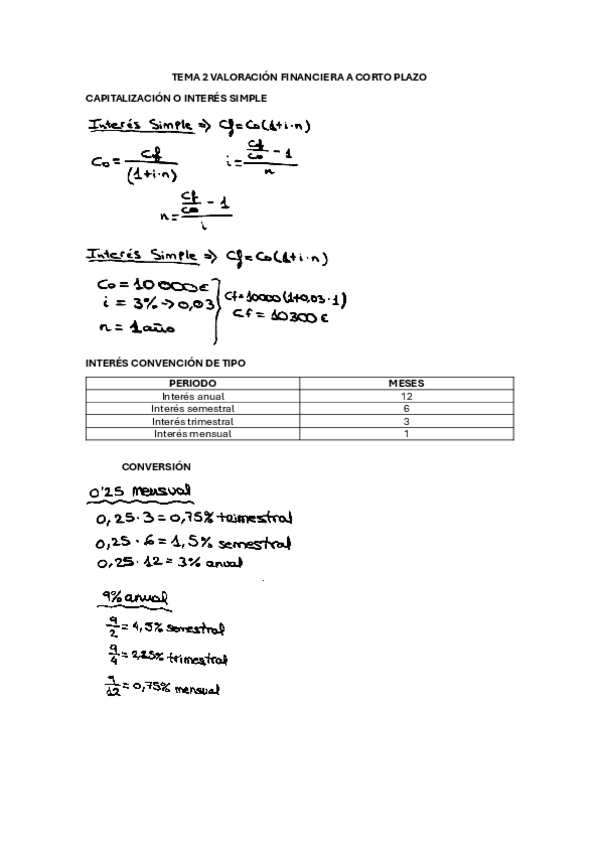 TEMA 2 VALORACIÓN FINANCIERA A CORTO PLAZO
CAPITALIZACIÓN O INTERÉS SIMPLE
Interés Simple => Cf = Co(1+i·n)
Co = Cf / (1+i·n)    i = (Cf/Co - 1) / n
n = (Cf/Co - 1) / i
Interés Simple => Cf = Co(1+i·n)
Co = 10 000€
i = 3% -> 0,03
n = 1 año
Cf = 10000(1+0,03·1)
Cf = 10300€
INTERÉS CONVENCIÓN DE TIPO
PERIODO MESES
Interés anual 12
Interés semestral 6
Interés trimestral 3
Interés mensual 1
CONVERSIÓN
0'25 mensual
0,25·3 = 0,75% trimestral
0,25·6 = 1,5% semestral
0,25·12 = 3% anual
9% anual
9/2 = 4,5% semestral
9/4 = 2,25% trimestral
9/12 = 0,75% mensual